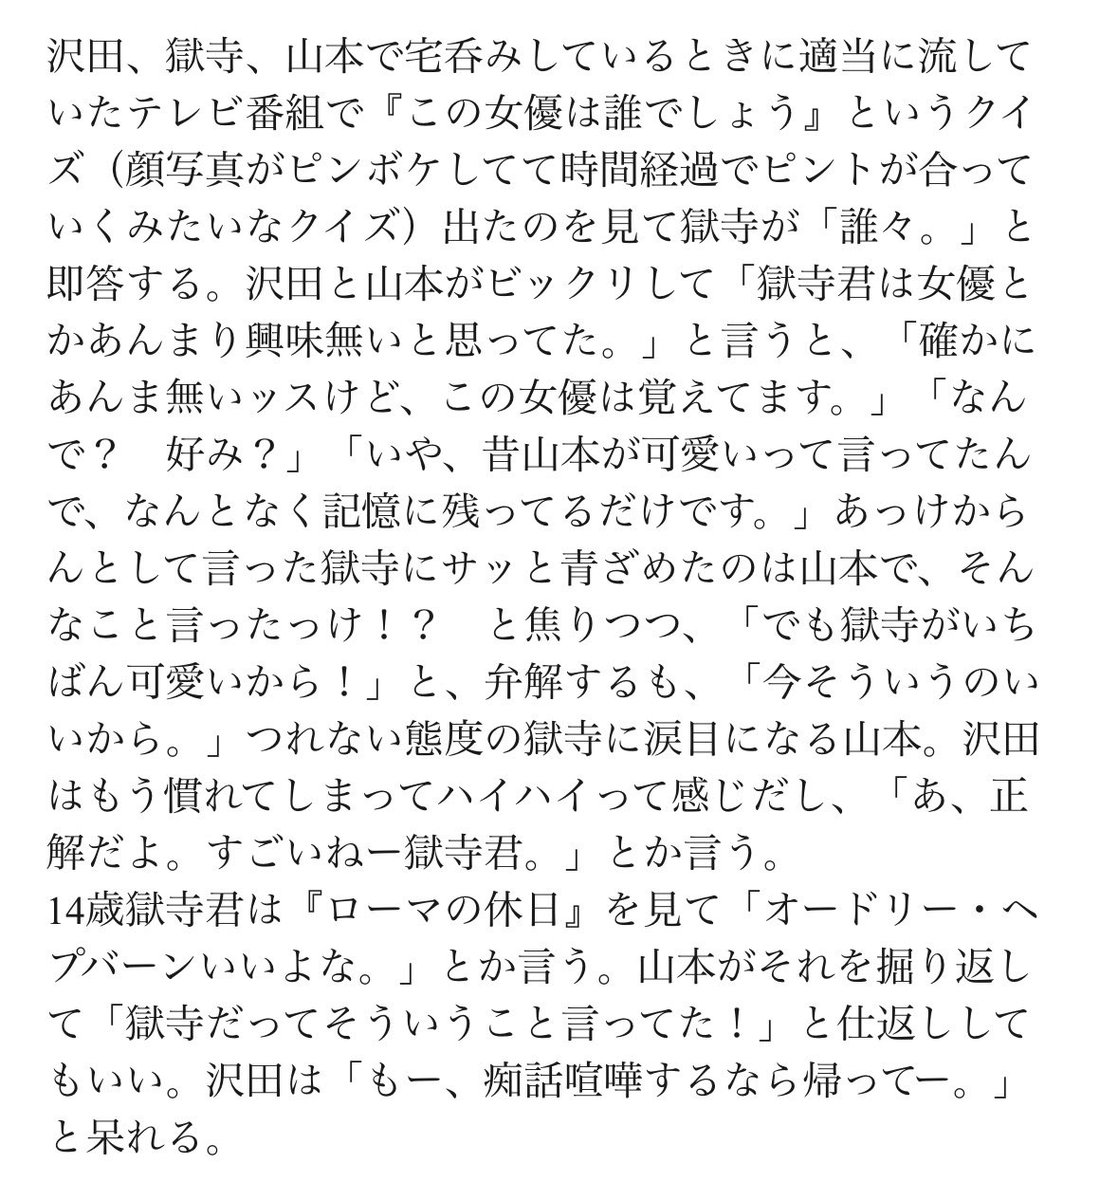 沢田、獄寺、山本で宅呑みしているときに適当に流して
いたテレビ番組で『この女優は誰でしょう』というクイ
ズ（顔写真がピンボケしてて時間経過でピントが合って
いくみたいなクイズ）出たのを見て獄寺が「誰々。」と
即答する。沢田と山本がビックリして「獄寺君は女優と
かあんまり興味無いと思ってた。」と言うと、「確かに
あんま無いッスけど、この女優は覚えてます。」「なん
で？　好み？」「いや、昔山本が可愛いって言ってたん
で、なんとなく記憶に残ってるだけです。」あっけから
んとして言った獄寺にサッと青ざめたのは山本で、そん
なこと言ったっけ！？　と焦りつつ、「でも獄寺がいち
ばん可愛いから！」と、弁解するも、「今そういうのい
いから。」つれない態度の獄寺に涙目になる山本。沢田
はもう慣れてしまってハイハイって感じだし、「あ、正
解だよ。すごいねー獄寺君。」とか言う。
14歳獄寺君は『ローマの休日』を見て「オードリー・ヘ
プバーンいいよな。」とか言う。山本がそれを掘り返し
て「獄寺だってそういうこと言ってた！」と仕返しして
もいい。沢田は「もー、痴話喧嘩するなら帰ってー。」
と呆れる。